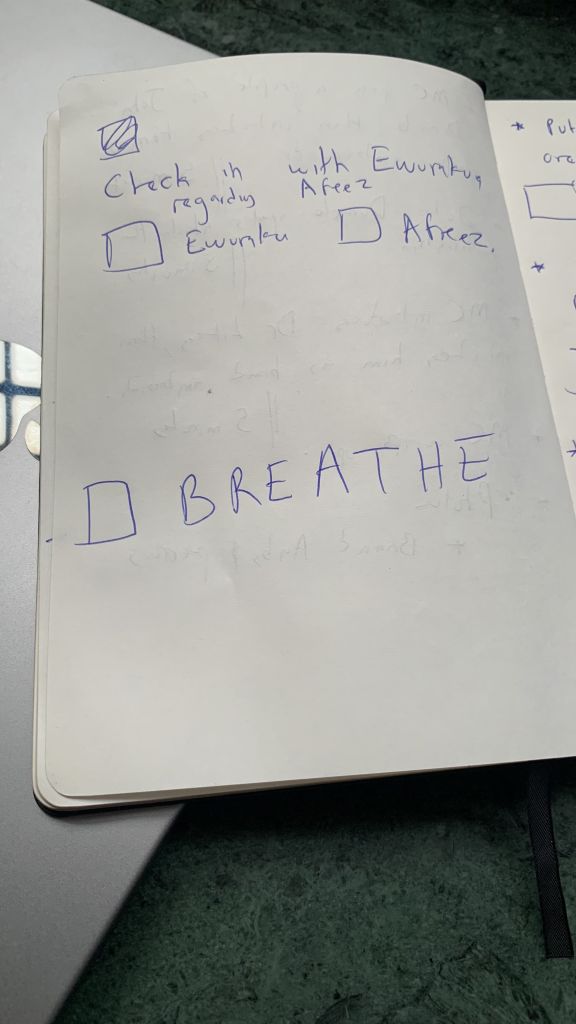 Check in with Ewuraku,
regarding Afeez
Ewuraku Afeez.
BREATHE
* Put
ora
*